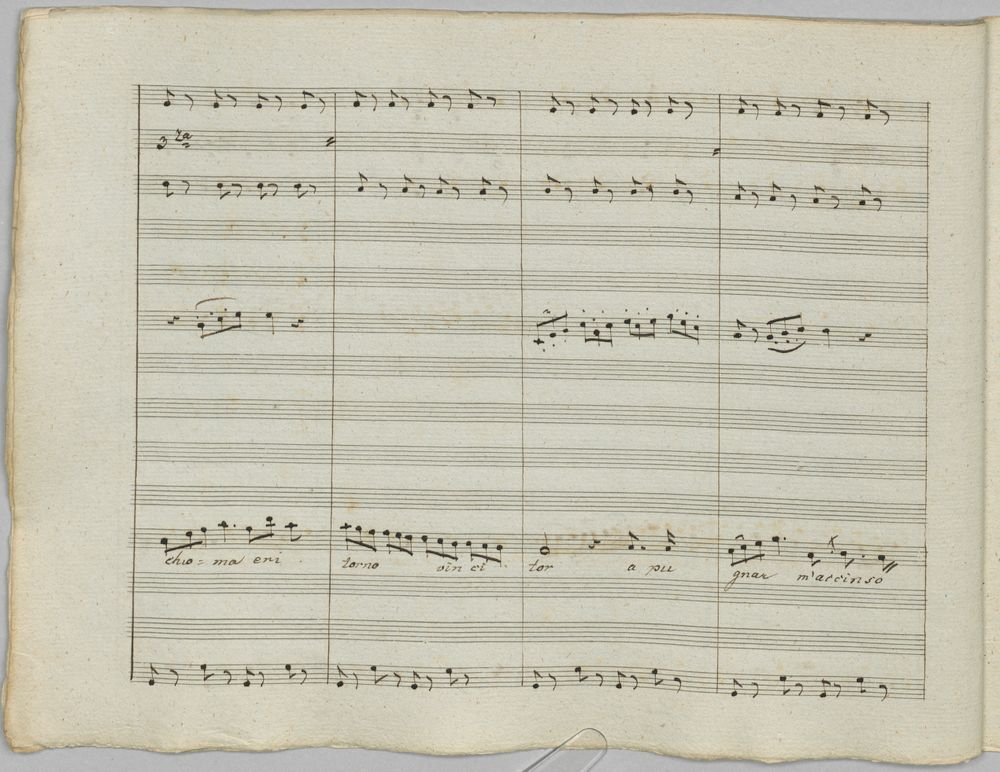 3 za
chio = ma eri torno vin ci tor a pu gnar m'accinso